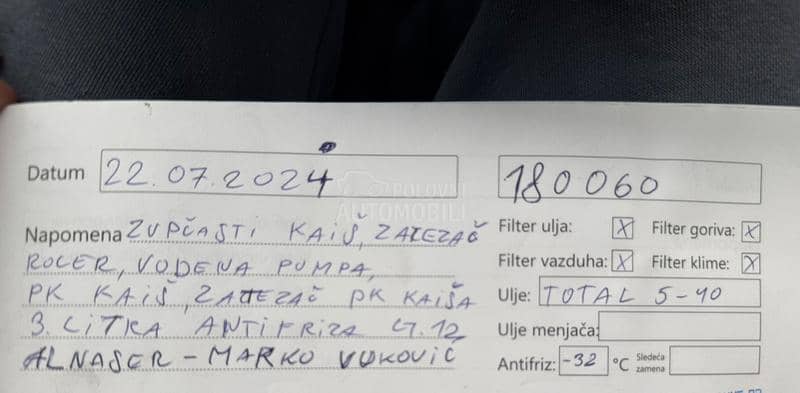 Datum 22.07.2024
180060
Napomena ZUPČASTI KAIŠ, ZATEZAČ
ROLER, VODENA PUMPA,
PK KAIŠ, ZATEZAČ PK KAIŠA
3. LITRA ANTIFRIZA G12
ALNASER - MARKO VUKOVIĆ
Filter ulja: X Filter goriva: X
Filter vazduha: X Filter klime: X
Ulje: TOTAL 5-40
Ulje menjača:
Antifriz: -32 °C Sledeća zamena
POLOVNI
AUTOMOBILI